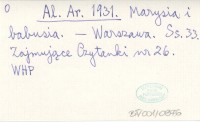 O
Al. Ar. 1931. Marysia i
babusia. — Warszawa. Ss. 33.
Zajmujące Czytanki nr 26.
WHP